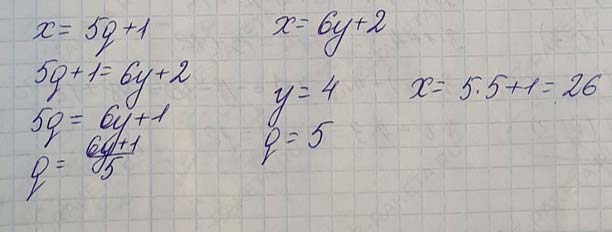 x = 5q+1
x = 6y+2
5q+1 = 6y+2
5q = 6y+1
q = (6y+1)/5
y = 4
q = 5
x = 5·5+1 = 26